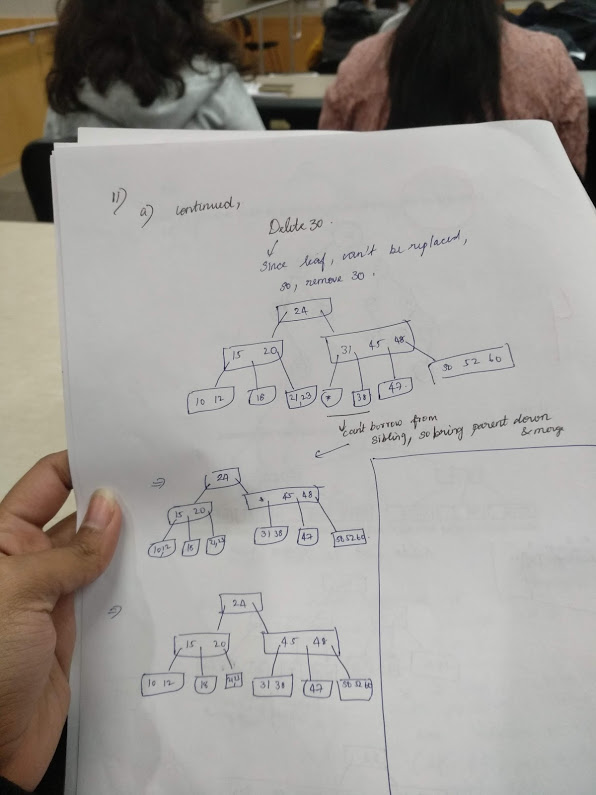 11) a) continued,
Delete 30.
↓
Since leaf, can't be replaced,
so, remove 30.
24
15 20 31 45 48
10 12 18 21,23 * 38 47 50 52 60
↓ can't borrow from
sibling, so bring parent down
& merge
⇒ 24
15 20 * 45 48
10,12 18 21,23 31 38 47 50 52 60
⇒ 24
15 20 45 48
10 12 18 21,23 31 38 47 50 52 60